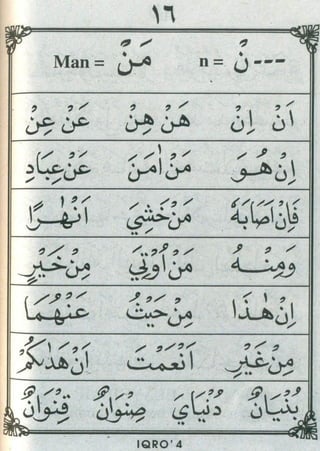 ١٦
---نْ = n مَنْ = Man
اَنْ اِنْ هَنْ هِنْ عَنْ عِنْ
اِنْ هُوَ مَنْ اٰمَنَ عَنْ عِبَادِ
فَاِنْ اَصَابَهٗ مَنْ خَشِيَ اَنْهٰرًا
وَمِنْهُ مَنْ اُوْتِيَ مِنْ خَيْرٍ
اِنْ هٰذَا مِنْ حَيْثُ عَنْهُمَا
مِنْ غَيْرِ اَنْعَمْتَ اَنْ هَدٰىكُمْ
بُنْيَانٌ دُنْيَايَ صِنْوَانٌ قِنْوَانٌ
IQRO' 4